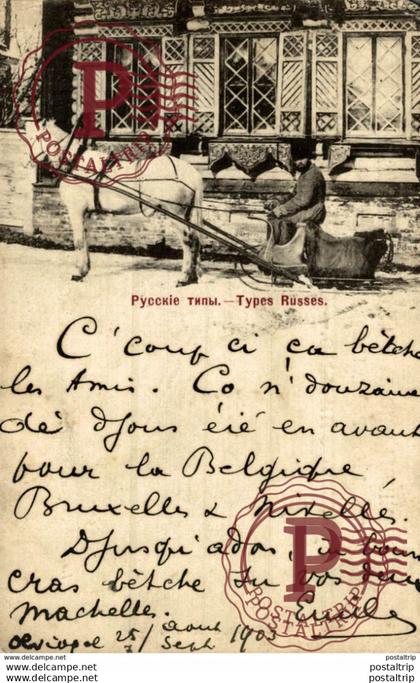 Русскіе типы. — Types Russes.
C' coup ci ca bètche
les Amis. Co n' douzaine
dè djous éié en avant
pour la Belgique
Bruxelles & Nivelles.
Djusqu'adon,
cras bètche su vos deux
Machelles. Emile
25/7 Août Sept 1903
POSTALTRIP
POSTALTRIP
www.postaltrip www.postaltrip www.postaltrip www.postaltrip